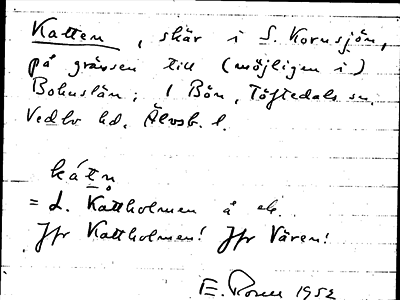 Katten, skär i S. Kornsjön,
på gränsen till (möjligen i)
Bohuslän; 1 Bön, Töftedals sn.
Vedbo hd. Älvsb. l.
kátn
= L. Kattholmen å ek.
Jfr Kattholmen! Jfr Vären!
E. 1952